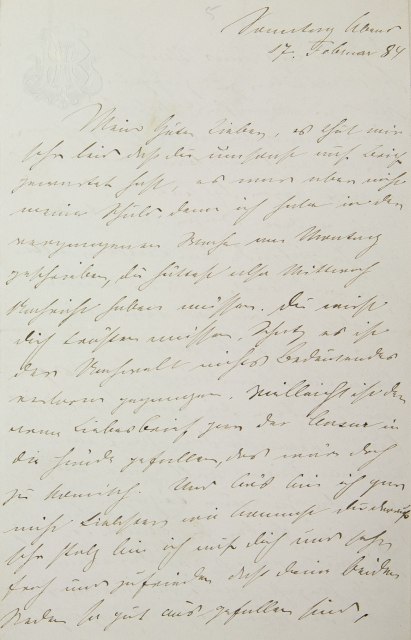 Sonntag Abend
17. Februar 84
Mein guter Lieber, es thut mir
sehr leid daß du umsonst auf Brief
gewartet hast, es war aber nicht
meine Schuld, denn ich habe in der
vergangenen Woche am Montag
geschrieben, du hättest also Mittwoch
Nachricht haben müssen. Du mußt
dich trösten müssen, Schatz, es ist
der Nachwelt nichts Bedeutendes
verloren gegangen. Vielleicht ist der
arme Liebesbrief gar der Censur in
die Hände gefallen, das wäre doch
zu komisch. Und bin ich gar
nicht Liebster
sehr stolz bin ich auf dich und sehr
froh und zufrieden daß deine beiden
Reden so gut aus gefallen sind,